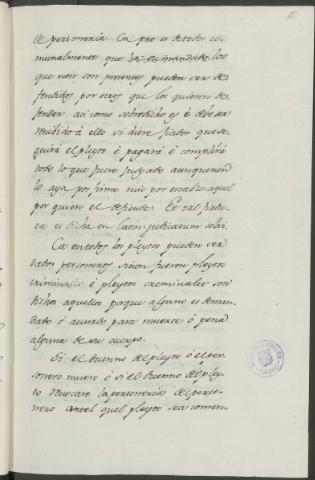 de personeria Ca pro es de todos co-
munalmente que los demandados los
que non son presentes pueden ser de-
fendidos por otros que los quieren de-
fender asi como sobredicho es é debe ser
rescibido á ello si diere fiador que se-
guirá el pleyto é pagará é complirá
todo lo que fuere judgado aunque non
lo aya por firme nin por estable aquel
por quien el defiende. Et tal fiadu-
ra es dicha en latin judicatum solvi.
Ca en todos los pleytos pueden ser
dados personeros sinon fueren pleytos
criminales é pleytos creminales son
dichos aquellos porque alguno es deman-
dado ó acusado para muerte ó pena
alguna de su cuerpo.
Si el duenno del pleyto ó el per-
sonero muere ó si el duenno del pley-
to revocare la personeria del perso-
nero ante quel pleyto sea comen-